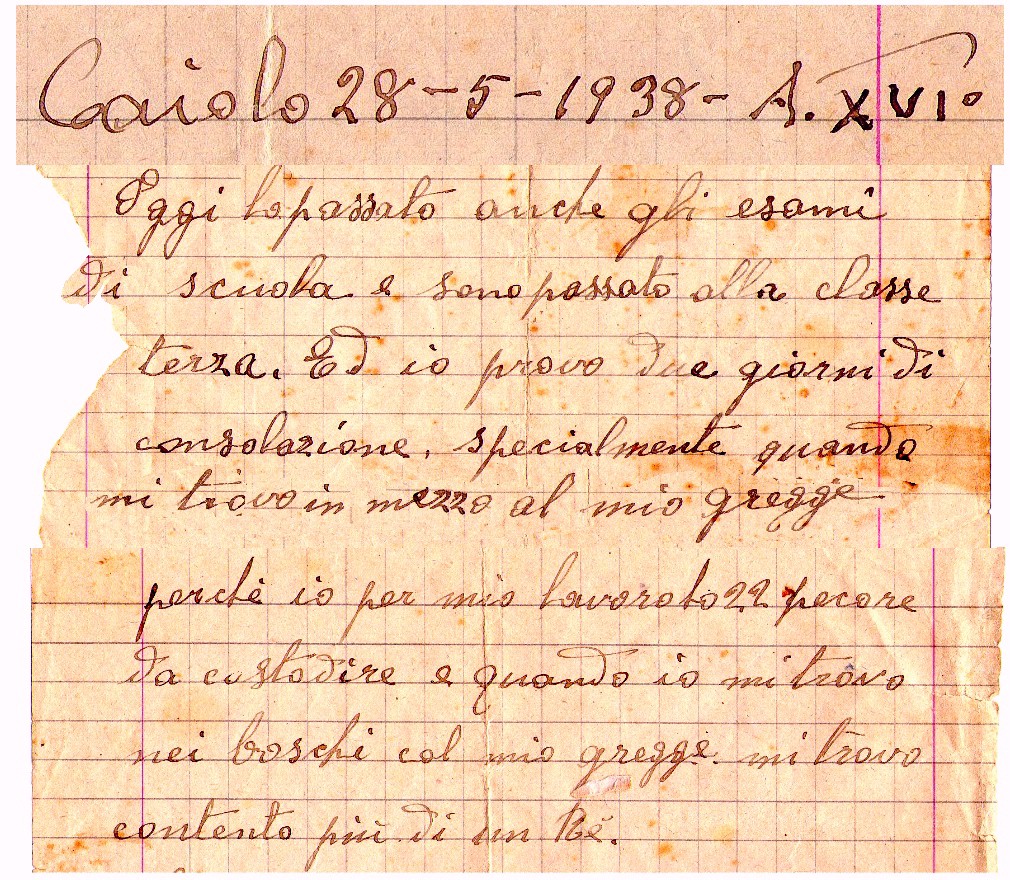 Caiolo 28-5-1938- A. XVI°
Oggi ho passato anche gli esami
di scuola e sono passato alla classe
terza. Ed io provo due giorni di
consolazione, specialmente quando
mi trovo in mezzo al mio gregge
perchè io per mio lavoro ho 22 pecore
da custodire e quando io mi trovo
nei boschi col mio gregge. mi trovo
contento più di un Ré.